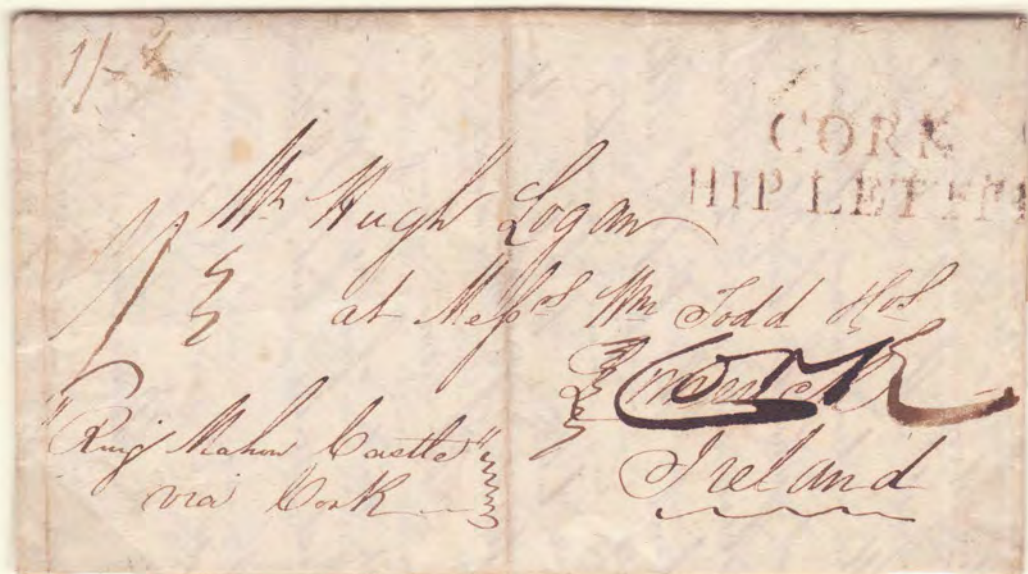 CORK
HIP LETTE
Mr Hugh Logan
at Messrs Wm Todd & Cos
Cork
Ireland
"Ring Mahon Castle"
via Cork